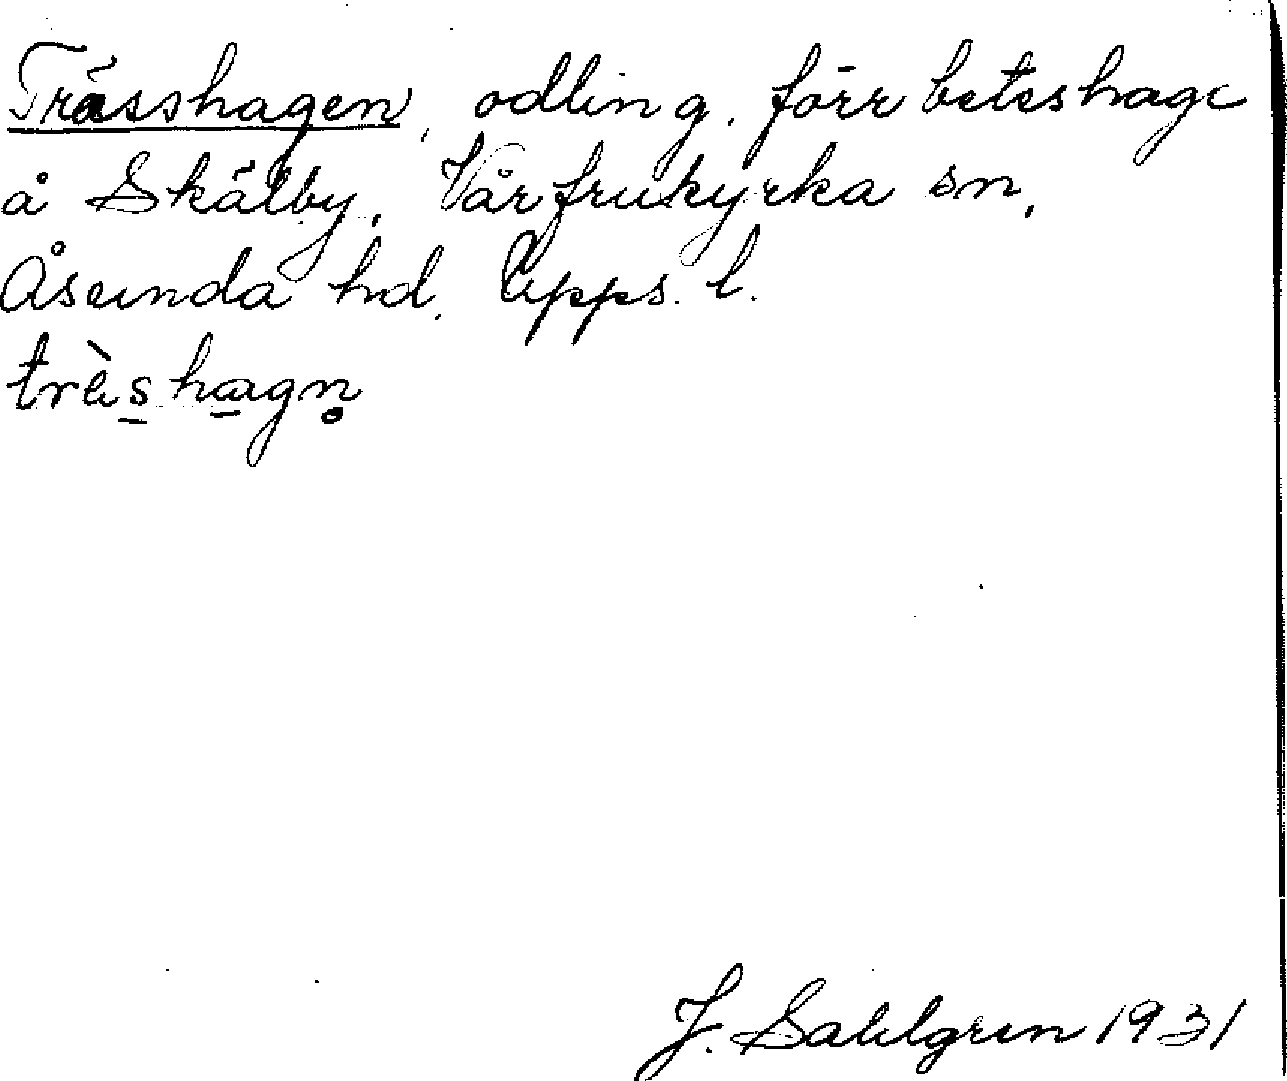 Trässhagen, odling, förr beteshage
å Skälby, Vårfrukyrka sn,
Åsunda hd. Upps. l.
trèshagn̥
J. Sahlgren 1931